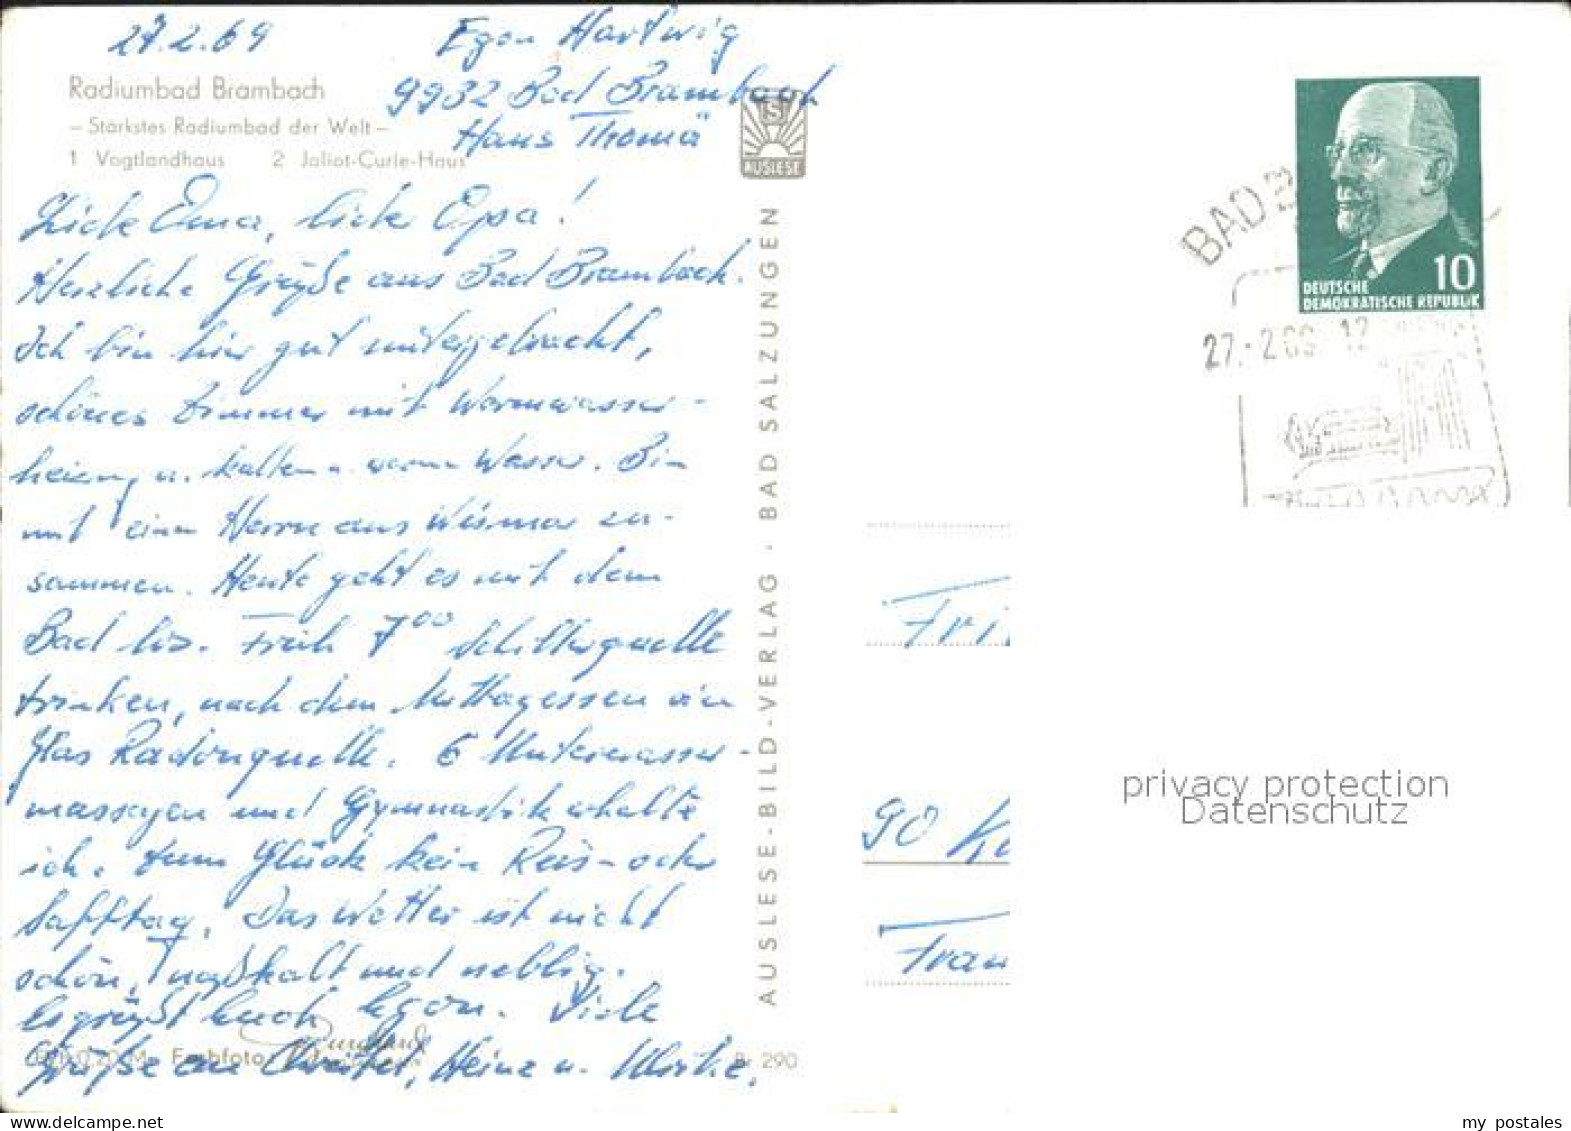 27.2.69
Egon Hartwig
9932 Bad Brambach
Hans Thomä
Radiumbad Brambach
– Stärkstes Radiumbad der Welt –
1 Vogtlandhaus 2 Joliot-Curie-Haus
AUSLESE
Liebe Oma, lieber Opa!
Herzliche Grüße aus Bad Brambach.
Ich bin hier gut untergebracht,
schönes Zimmer mit Warmwasser-
heizung u. kalten u. warmen Wasser. Bin
mit einem Herrn aus Wismar zu-
sammen. Heute geht es mit dem
Bad los. Früh 7⁰⁰ Schillerquelle
trinken, nach dem Mittagessen ein
Glas Radonquelle. 6 Unterwasser-
massagen und Gymnastik erhalte
ich. Zum Glück kein Reis- oder
Safttag. Das Wetter ist nicht
schön, naßkalt und neblig.
Es grüßt Euch Egon. Viele
Grüße an Christel, Heinz u.
Farbfoto:
290
AUSLESE-BILD-VERLAG · BAD SALZUNGEN
BAD
27.-2.69-12
10
DEUTSCHE
DEMOKRATISCHE REPUBLIK
Fri
90 K
Frau
privacy protection
Datenschutz
my postales